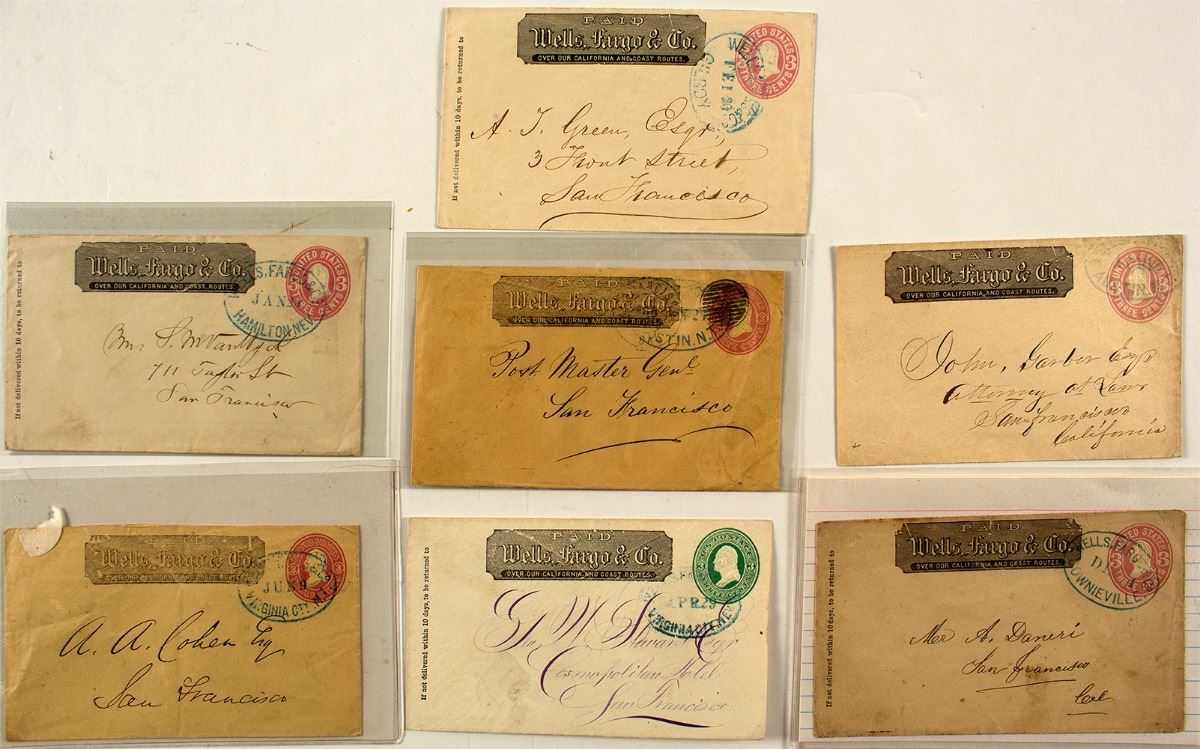 If not delivered within 10 days, to be returned to
PAID
Wells, Fargo & Co.
OVER OUR CALIFORNIA AND COAST ROUTES.
UNITED STATES
THREE CENTS
3 3
FEB 20
A. J. Green, Esqr,
3 Front Street,
San Francisco
If not delivered within 10 days, to be returned to
PAID
Wells, Fargo & Co.
OVER OUR CALIFORNIA AND COAST ROUTES.
UNITED STATES
3 3
CENTS
WELLS, FARGO
JAN
HAMILTON NEV
711 Taylor St
San Francisco
PAID
Wells, Fargo & Co.
OVER OUR CALIFORNIA AND COAST ROUTES.
AUSTIN, N.T.
Post Master Genl
San Francisco
If not delivered within 10 days, to be returned to
PAID
Wells, Fargo & Co.
OVER OUR CALIFORNIA AND COAST ROUTES.
UNITED
3 3
THREE CENTS
John, Garber Esqr
Attorney at Law
San Francisco
California
PAID
Wells, Fargo & Co.
OVER OUR CALIFORNIA AND COAST ROUTES.
3 3
JUN 9
VIRGINIA CTY
A. A. Cohen Esq
San Francisco
If not delivered within 10 days, to be returned to
PAID
Wells, Fargo & Co.
OVER OUR CALIFORNIA AND COAST ROUTES.
U.S. POSTAGE
3 3
THREE CENTS
APR 29
VIRGINIA CITY NEV
Geo. W.
Cosmopolitan Hotel
San Francisco
If not delivered within 10 days, to be returned to
PAID
Wells, Fargo & Co.
OVER OUR CALIFORNIA AND COAST ROUTES.
UNITED STATES
3 3
CENTS
WELLS, FARGO
DOWNIEVILLE
Mr A. Daneri
San Francisco
Cal